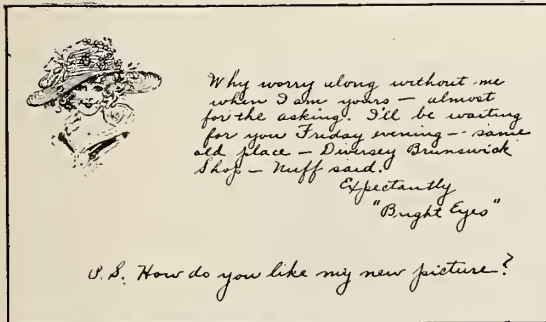 Why worry along without me
when I am yours — almost
for the asking. I'll be waiting
for you Friday evening — same
old place — Diversey Brunswick
Shop — Nuff said.
Expectantly
"Bright Eyes"
P.S. How do you like my new picture?